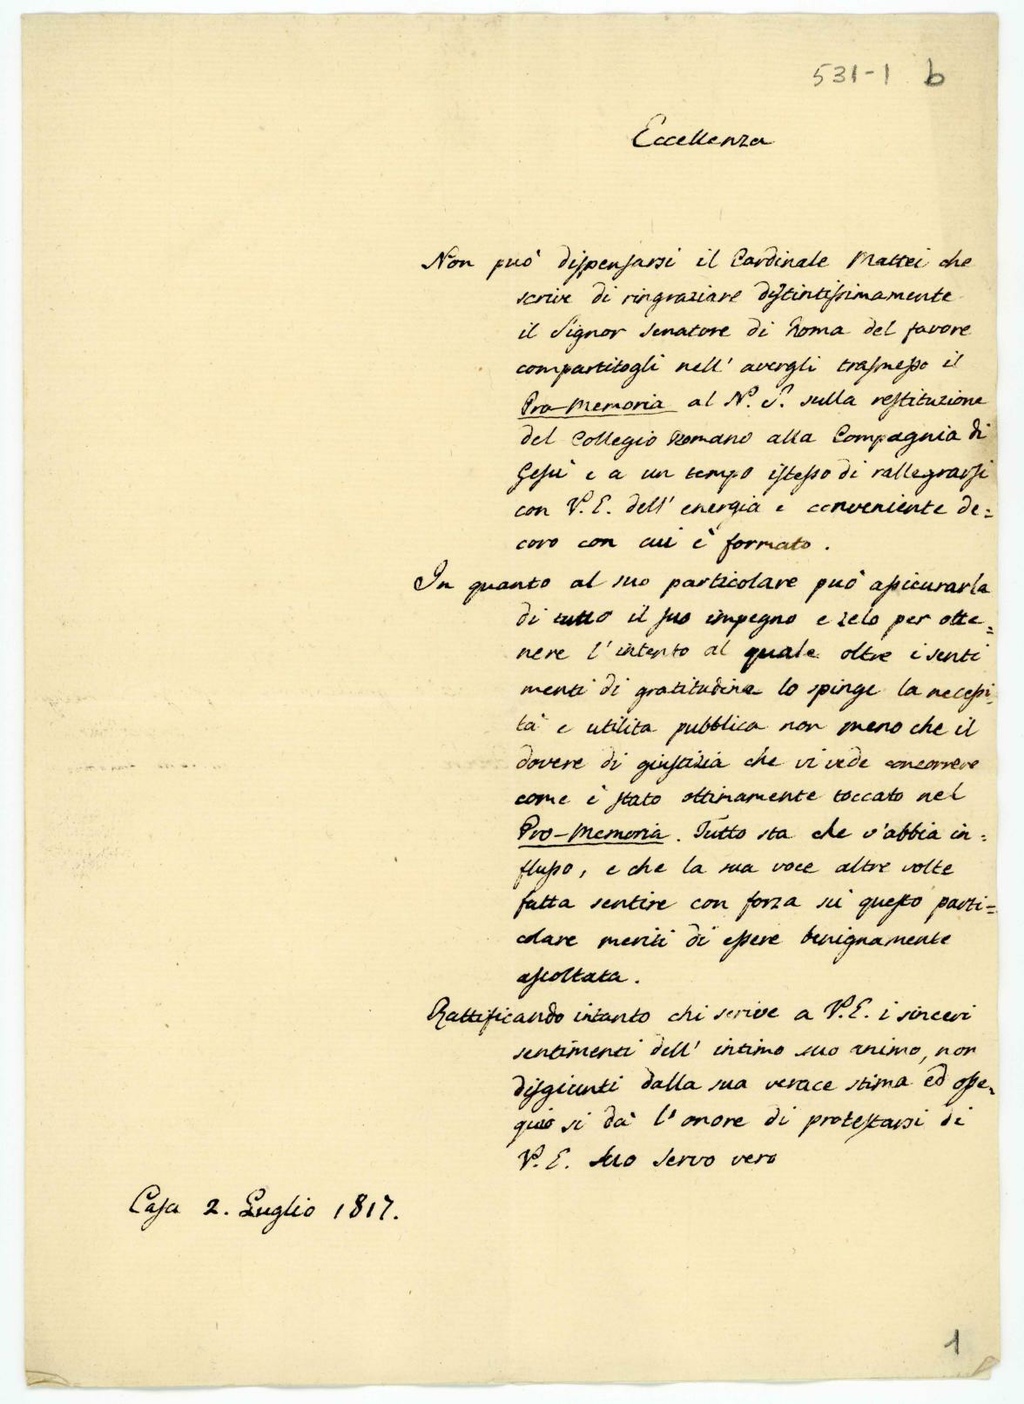 531-1 b
Eccellenza
Non può dispensarsi il Cardinale Mattei che
scrive di ringraziare distintissimamente
il Signor Senatore di Roma del favore
compartitogli nell' avergli trasmesso il
Pro-Memoria al N. S. sulla restituzione
del Collegio Romano alla Compagnia di
Gesù e a un tempo istesso di rallegrarsi
con V. E. dell' energia e conveniente de=
coro con cui è formato.
In quanto al suo particolare può assicurarla
di tutto il suo impegno e zelo per otte=
nere l' intento al quale oltre i senti
menti di gratitudine lo spinge la necessi=
tà e utilita pubblica non meno che il
dovere di giustizia che vi vede concorrere
come è stato ottimamente toccato nel
Pro-Memoria. Tutto sta che v'abbia in=
flusso, e che la sua voce altre volte
fatta sentire con forza sù questo parti=
colare meriti di essere benignamente
ascoltata.
Rattificando intanto chi scrive a V. E. i sinceri
sentimenti dell' intimo suo animo, non
disgiunti dalla sua verace stima ed osse=
quio si dà l' onore di protestarsi di
V. E. Suo Servo vero
Casa 2. Luglio 1817.
1